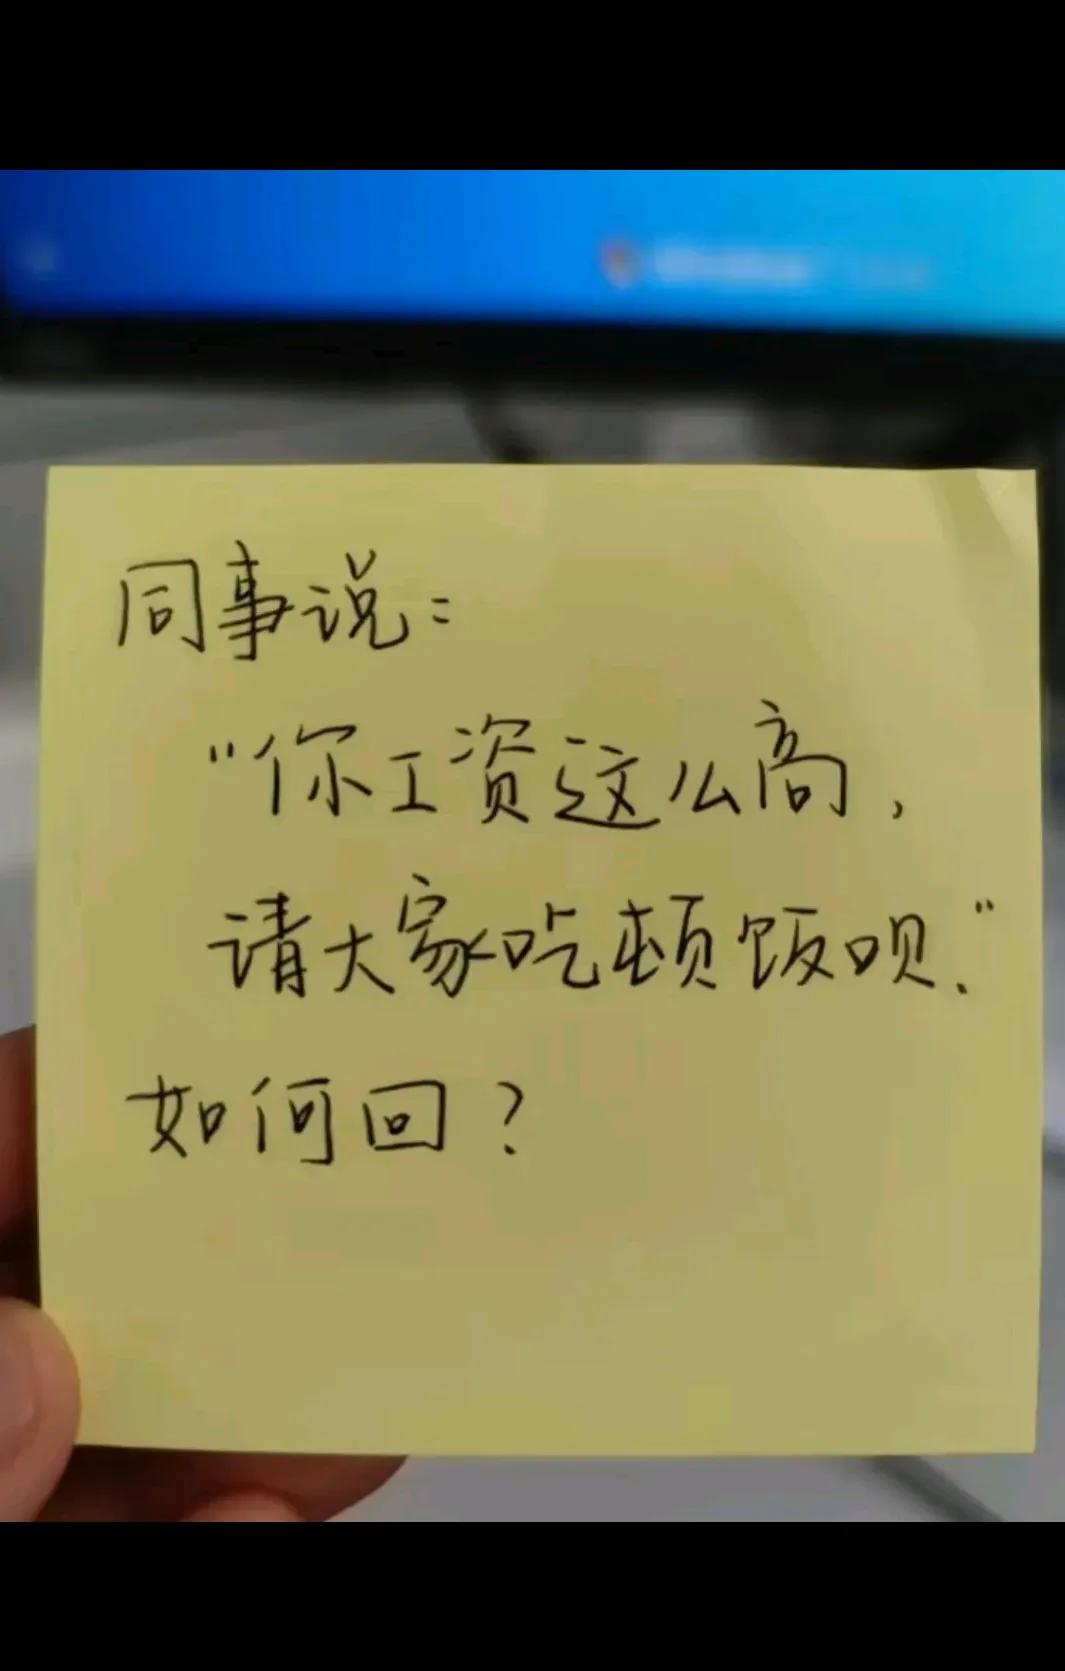 同事说:
"你工资这么高,
请大家吃顿饭呗."
如何回?